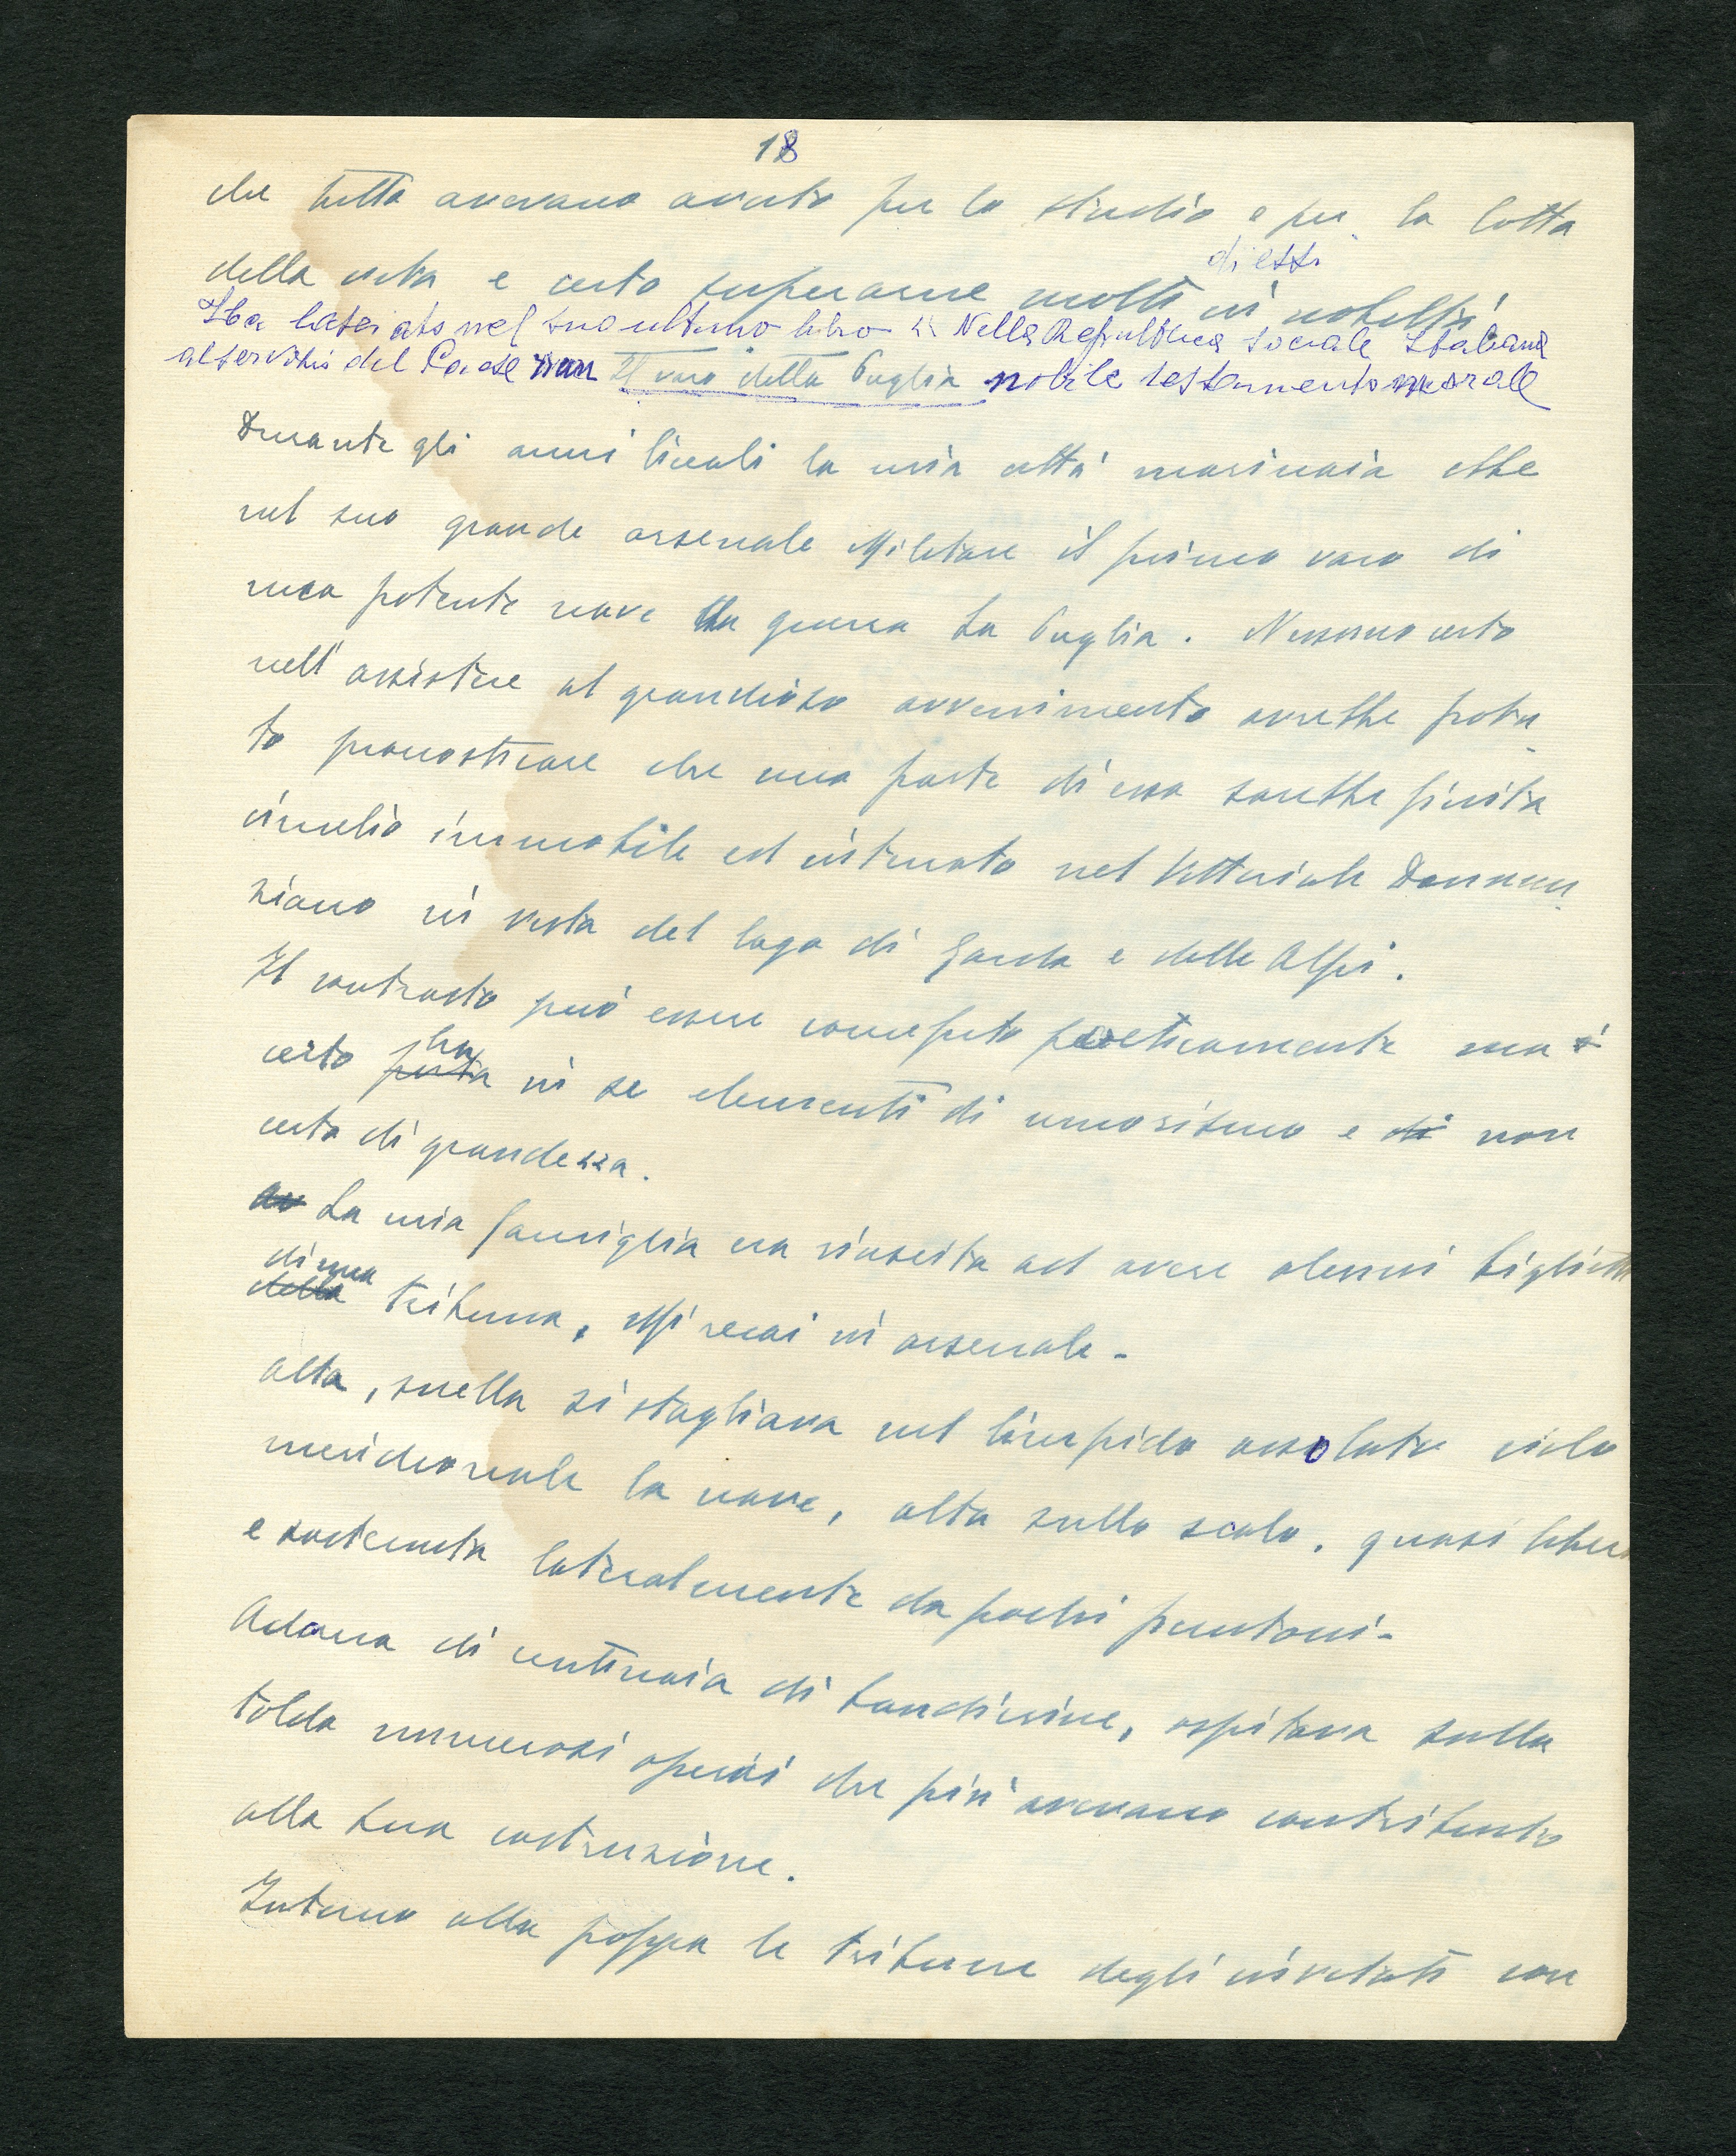 18
che tutto avevano avuto per lo studio e per la lotta
di essi
della vita e certo superarne molti in nobiltà
Ha lasciato nel suo ultimo libro "Nella Repubblica Sociale Italiana
al servizio del Paese un Il varo della Puglia nobile testamento morale
Durante gli anni liceali la mia città marinaia ebbe
nel suo grande arsenale Militare il primo varo di
una potente nave da guerra La Puglia. Nessuno certo
nell'assistere al grandioso avvenimento avrebbe potu-
to pronosticare che una parte di essa sarebbe finita
cimelio immobile ed interrato nel Vittoriale Dannun
ziano in vista del lago di Garda e delle Alpi.
Il contrasto può essere concepito poeticamente ma è
ha
certo porta in se elementi di umorismo e di non
certo di grandezza.
La mia famiglia era riuscita ad avere alcuni biglietti
di una
della tribuna. Mi recai in arsenale-
alta, snella si stagliava nel limpido assolato cielo
meridionale la nave, alta sullo scalo, quasi libera
e sostenuta lateralmente da pochi puntoni-
Adorna di centinaia di bandierine, ospitava sulla
tolda numerosi operai che più avevano contribuito
alla sua costruzione.
Intorno alla poppa le tribune degli invitati con